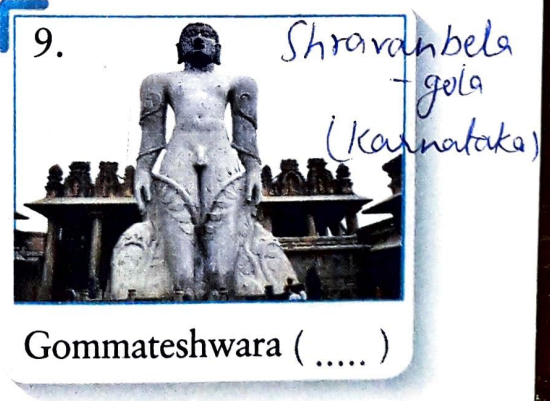 9.
Shravanbela
- gola
(Karnataka)
Gommateshwara ( ..... )